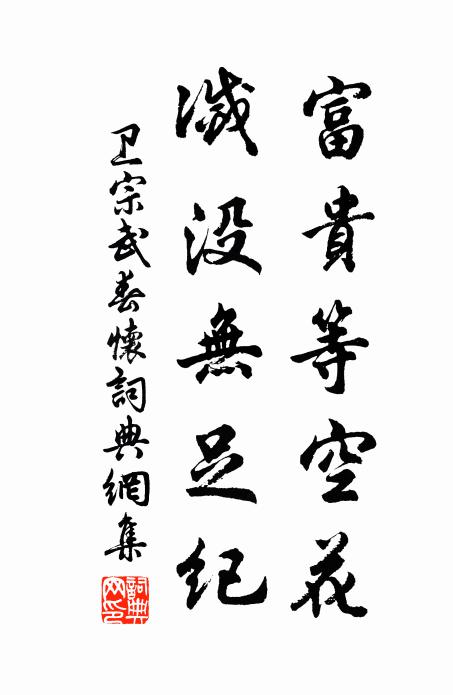 富貴等空花
滅没無足紀
卫宗武春懷詞典網集
詞典網印